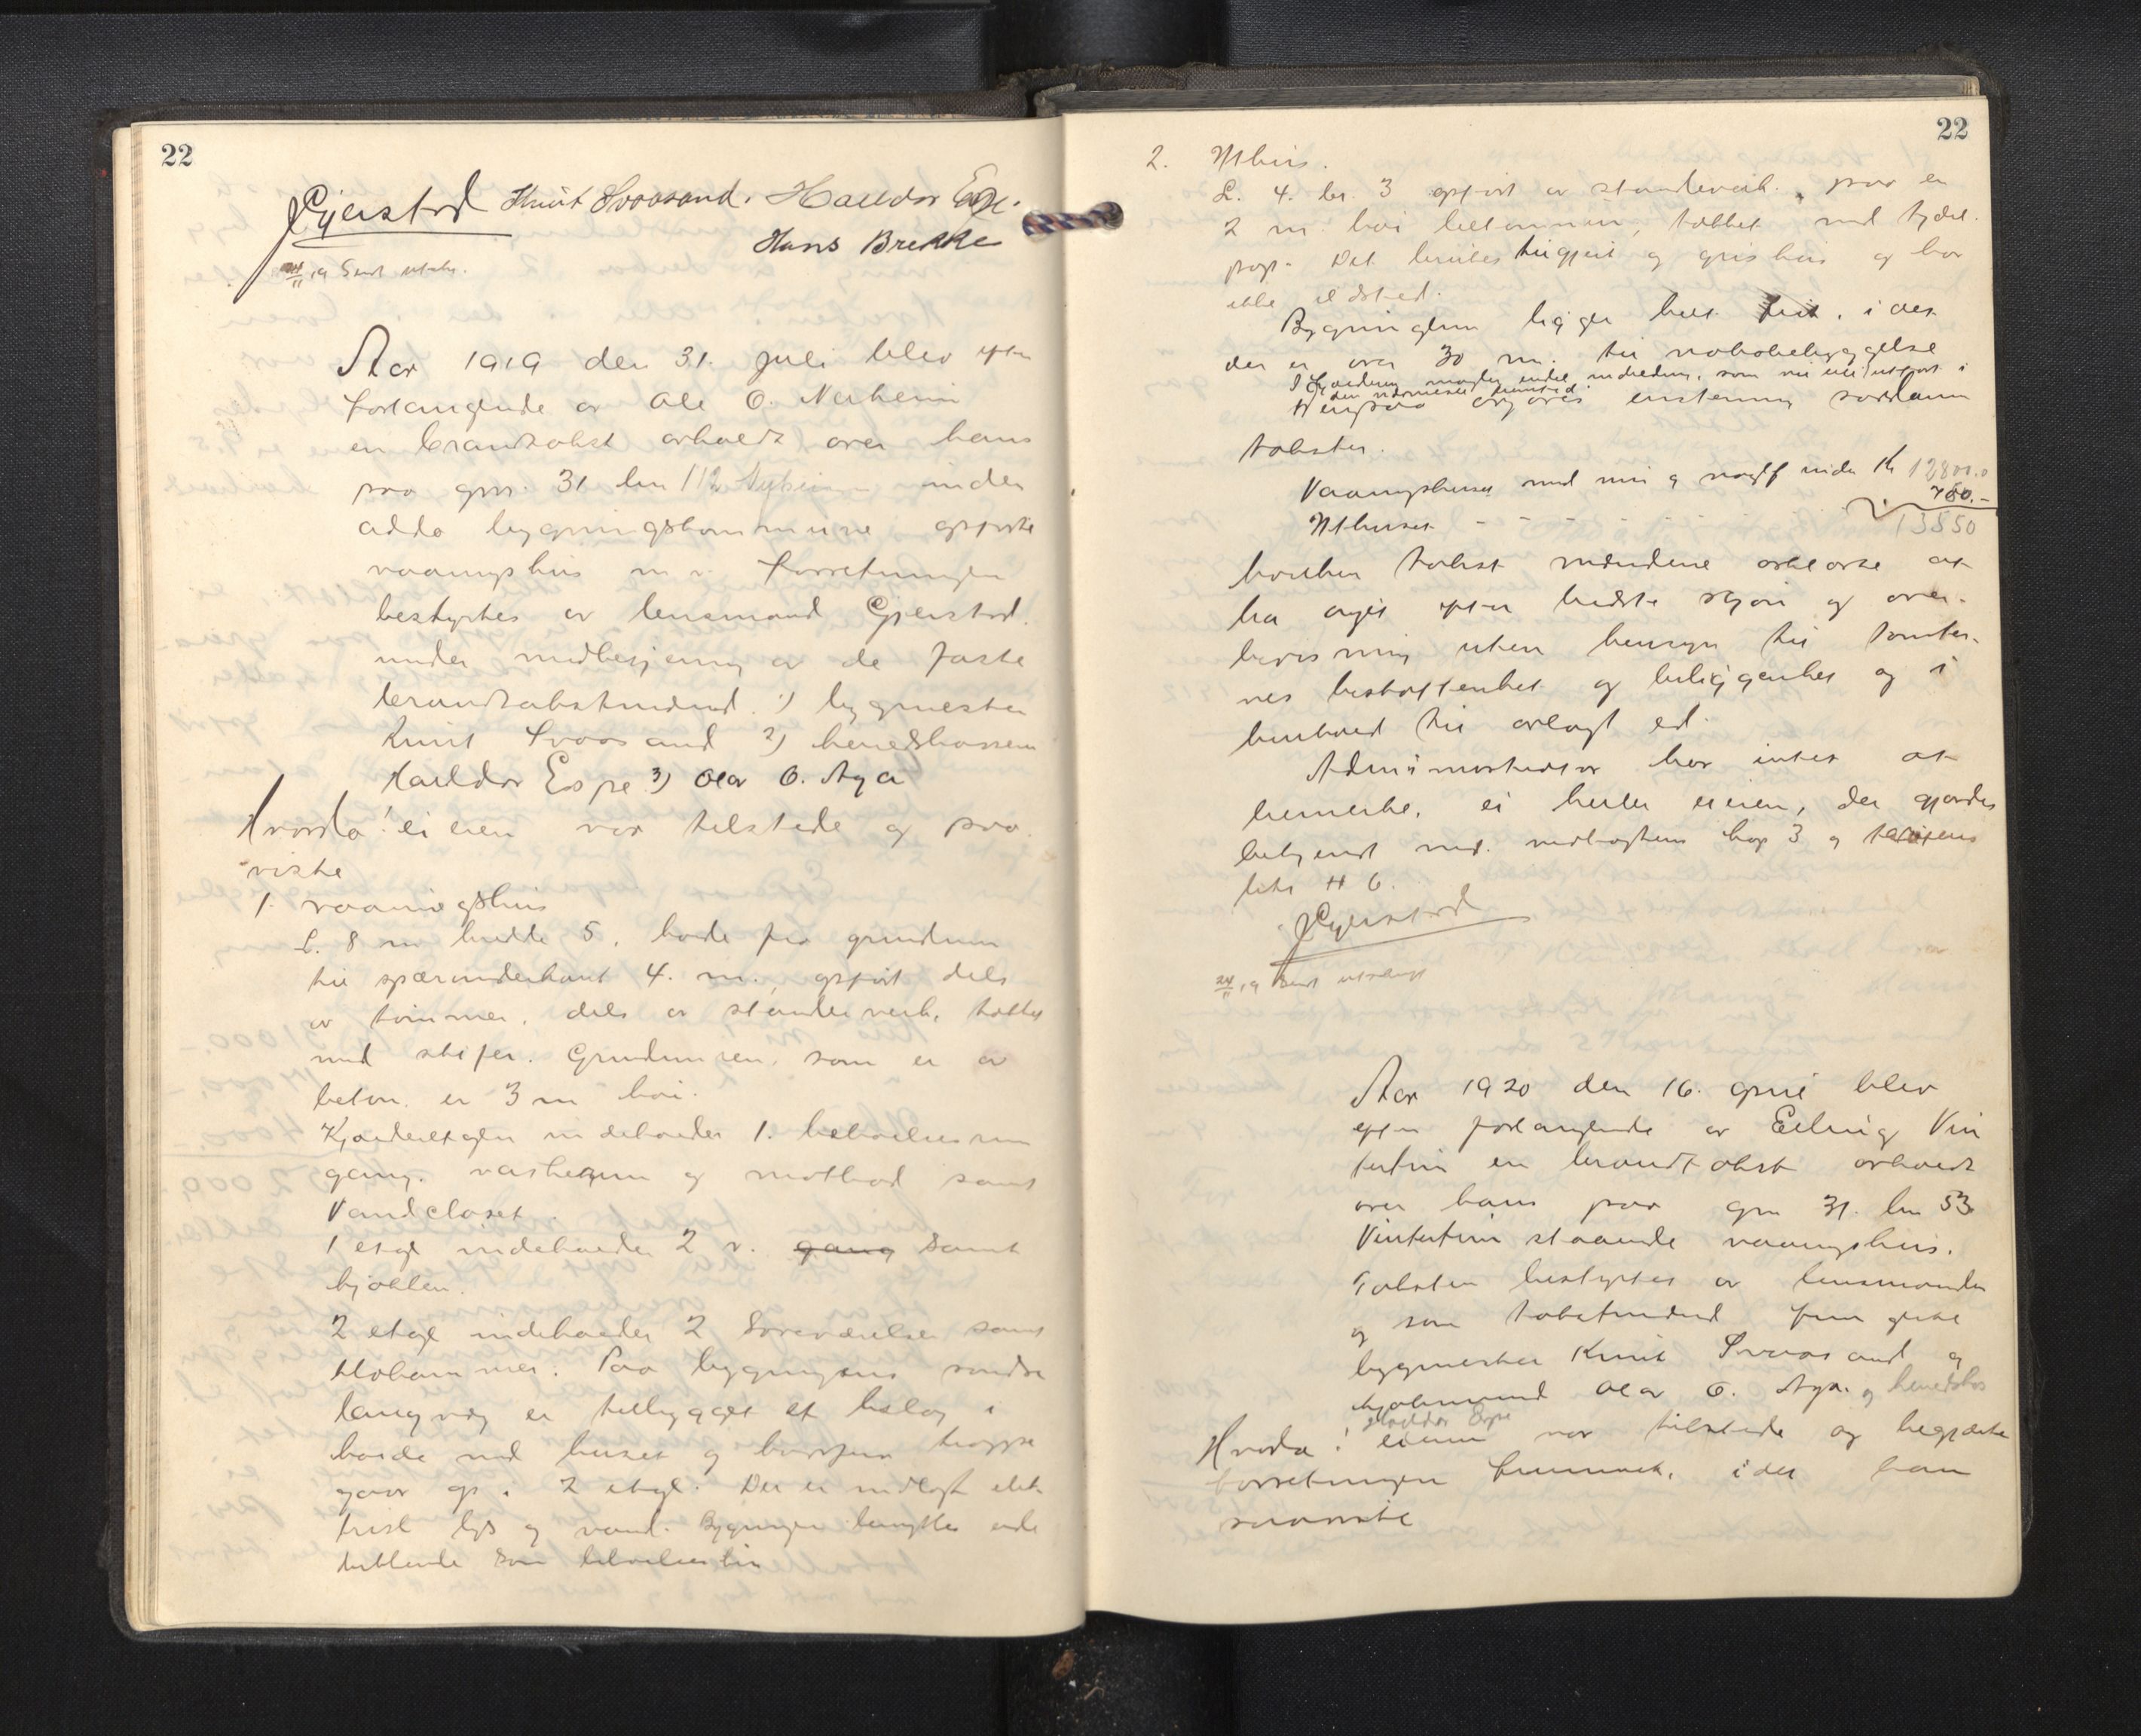 22
Gjerstad Knut Svaasand. Halldor Espe.
Hans Brekke
24/11 19 Sendt utskr.
Aar 1919 den 31. juli blev efter
forlangende av Ole O. Neiheim
en brandtakst avholdt over hans
paa gnr. 31 bnr 112 under
odda bygningskommune opførte
vaaningshus m. v. Forretningen
bestyrtes av lensmand Gjerstad.
under medbetjening av de faste
brandtakstmænd. 1) bygmester
Knut Svaasand 2) heredskasserer
Halldor Espe 3) Olav O. Aga
Hvorda! eieren var tilstede og paa-
viste
1. vaaningshus
L. 8 m bredde 5, høide fra grundmur
til spærunderkant 4. m., opført dels
av tømmer, dels av stenderverk, tækket
med skifer. Grundmuren, som er av
beton er 3 m høi.
Kjælderetagen indeholder 1. beboelsesrum
gang. vaskerum og matbod samt
Vandcloset.
1 etage indeholder 2 v. gang samt
kjøkken.
2 etage indeholder 2 soveværelser samt
klækammer. Paa bygningens søndre
langvæg er tilbygget et bislag i
høide med huset og hvorfra trappe
gaar op i 2 etage. Der er indlagt elek
trisk lys og vand. Bygningen benyttes ude
lukkende som beboelseshus
22
2. Uthus.
L. 4. br. 3 opført av stenderverk, paa en
2 m. høi betonmur, tækket med tjære-
pap. Det brukes til gjeit og grishus og har
ikke ildsted.
Bygningen ligger helt frit, i det
der er over 30 m. til nabobebyggelse
I kjælderen mangler endel indredning, som vil bli utført i
den nærmeste fremtid.
Herpaa avgaves enstemmig saadann
takster.
Vaaningshuset med mur og under Kr 12800.0
Uthuset - - - - - - 750.-
13550
hvilken takst mændene erklærte at
ha avgit efter bedste skjøn og over-
bevisning uten hensyn til tomter-
nes beskaffenhet og beliggenhet og i
henhold til avlagt ed.
Administrator har intet at
bemerke, ei heller eieren, der gjordes
bekjendt med. vedtægtens kap 3 og tariffens
litr H 6.
Gjerstad
24/11 19 Sendt utskrift
Aar 1920 den 16. april blev
efter forlangende av Erling Vin
tertun en brandtakst avholdt
over hans paa gnr 31. bnr 53
Vintertun staaende vaaningshus.
Taksten bestyrtes av lensmanden
og som takstmænd fungerte
bygmester Knut Svaasand og
Olav O. Aga. og heredskas
Halldor Espe
Hvorda! eieren var tilstede og begjærte
forretningen fremmet, idet han
paaviste